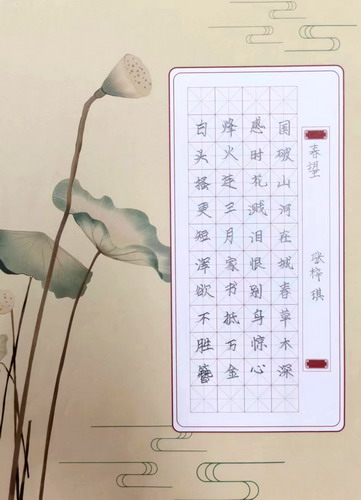 春望
张梓琪
国破山河在城春草木深
感时花溅泪恨别鸟惊心
烽火连三月家书抵万金
白头搔更短浑欲不胜簪